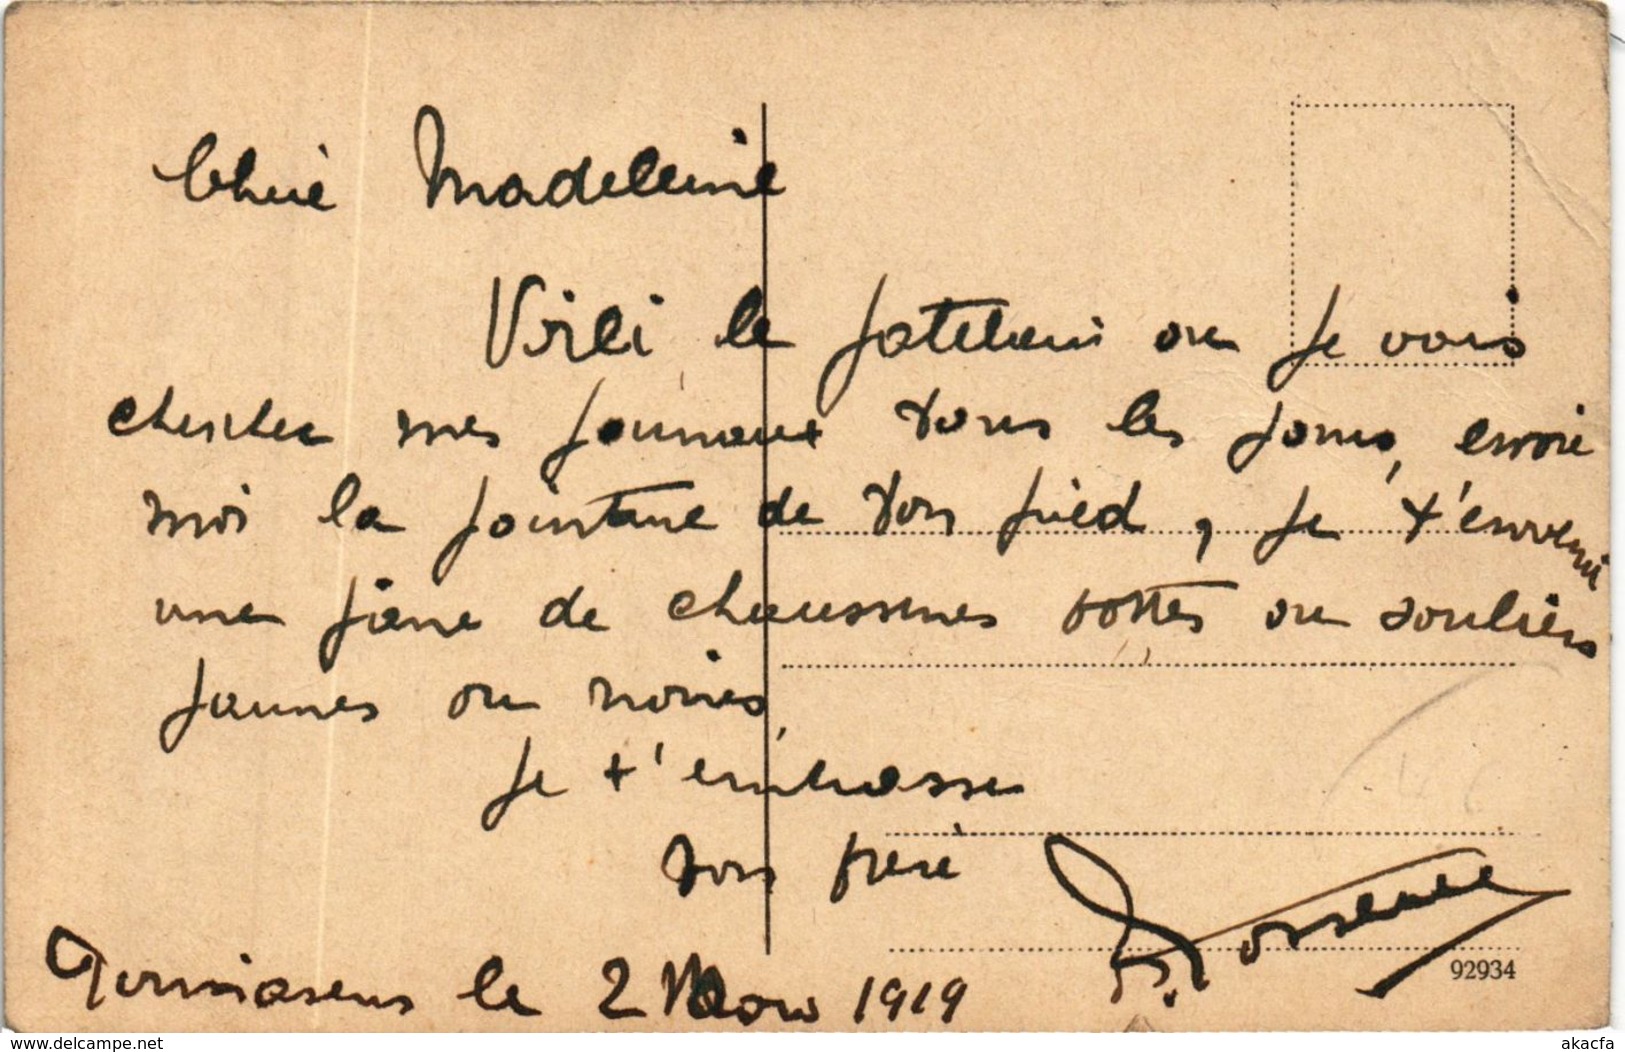 Chère Madeleine
Voici le bateau ou je vais
chercher mes journaux tous les jours, envoie
moi la pointure de ton pied, je t'enverrai
une paire de chaussures bottes ou souliers
jaunes ou noires,
Je t'embrasse
ton frère
le 2 Mars 1919
92934
www.delcampe.net
akacfa